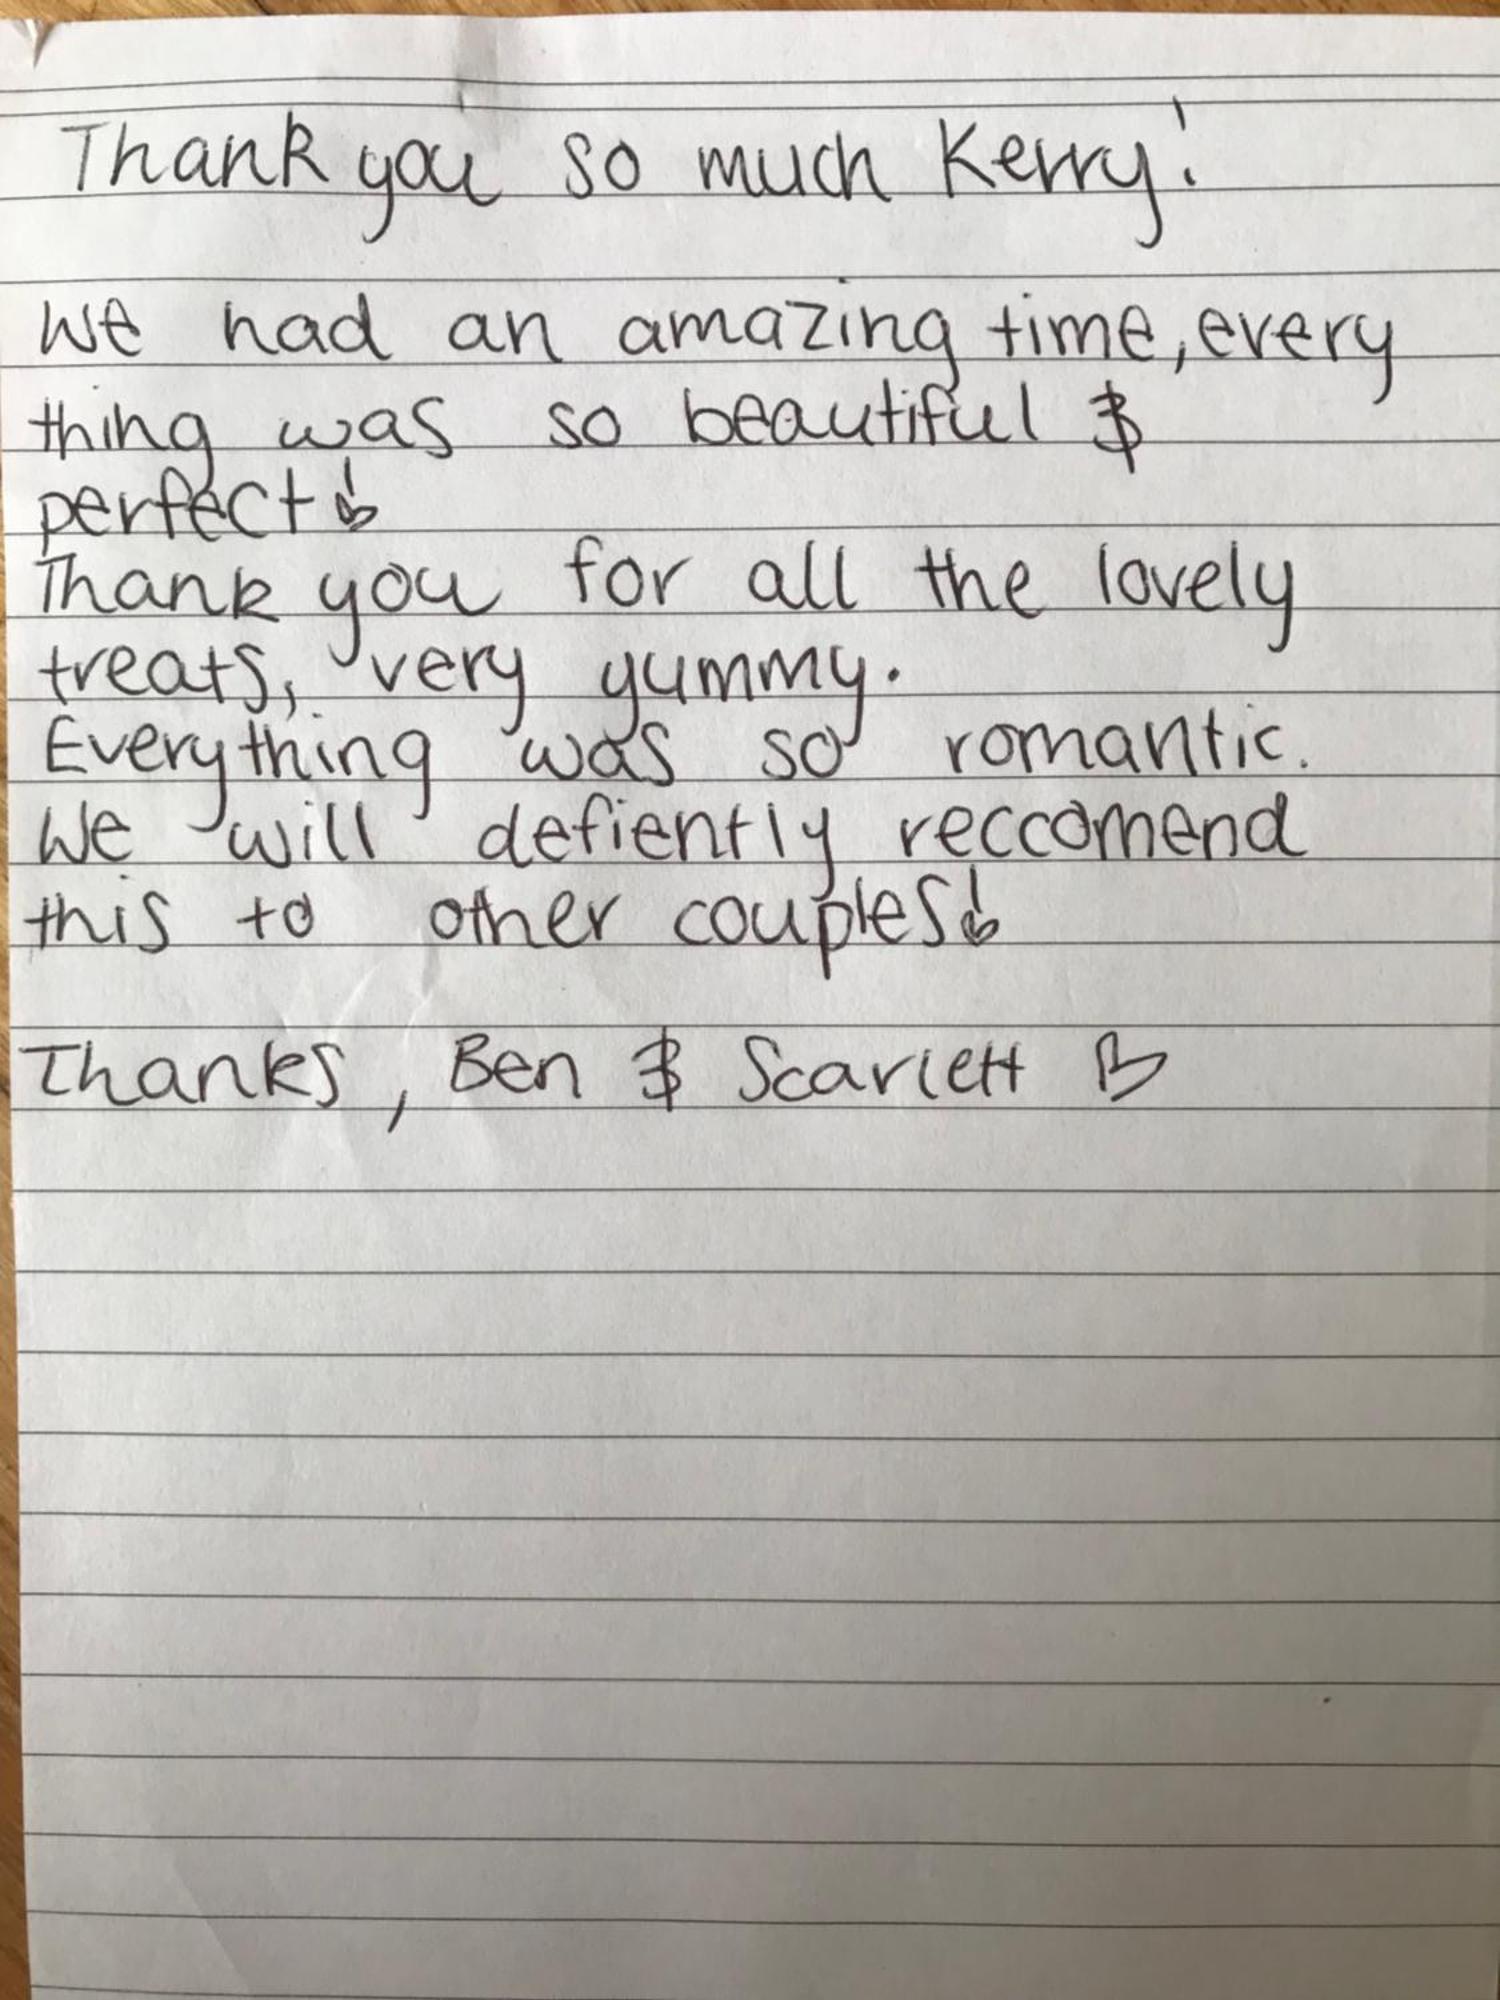 Thank you so much Kerry!
We had an amazing time, every
thing was so beautiful &
perfect!
Thank you for all the lovely
treats, very yummy.
Everything was so romantic.
We will defiently reccomend
this to other couples!
Thanks, Ben & Scarlett ♡